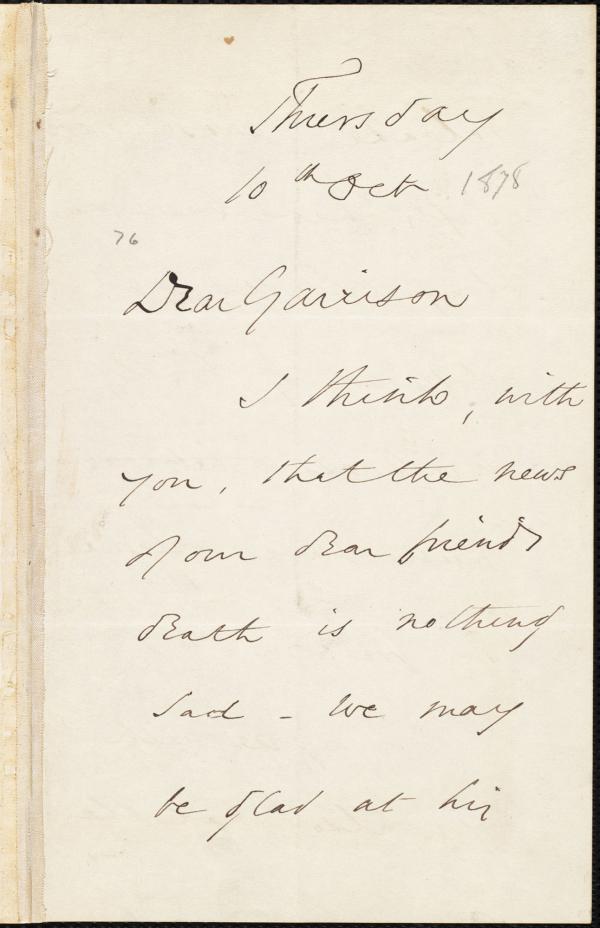 Thursday
10th Oct 1878
76
Dear Garrison
I think, with
you, that the news
of our dear friends
death is nothing
sad - We may
be glad at his